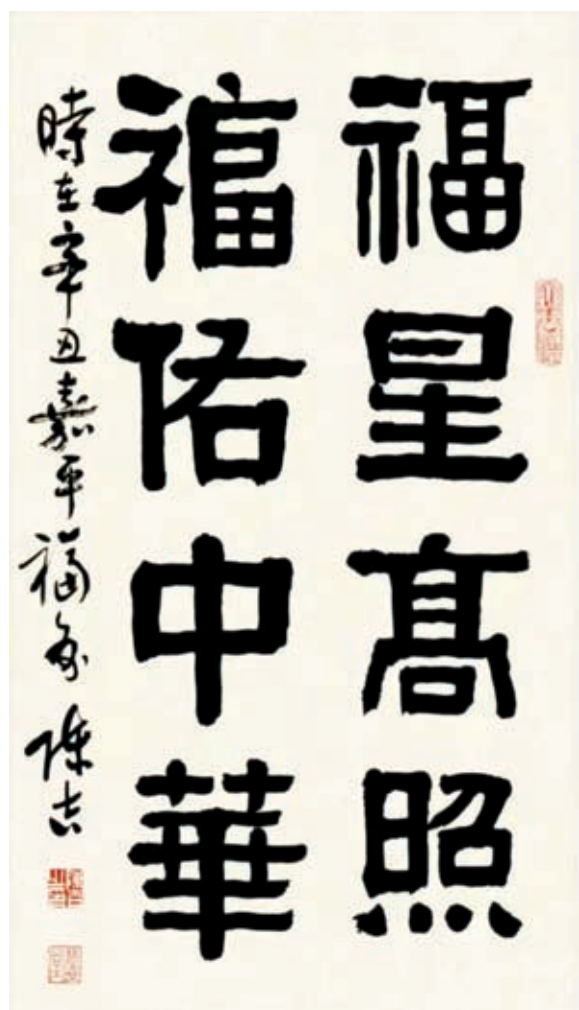 福星髙照
福佑中華
時在辛丑嘉平福安陳吉